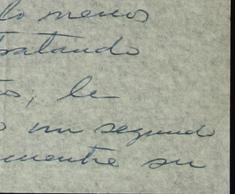 lo menos
tratando
os, le
o un segundo
mente su